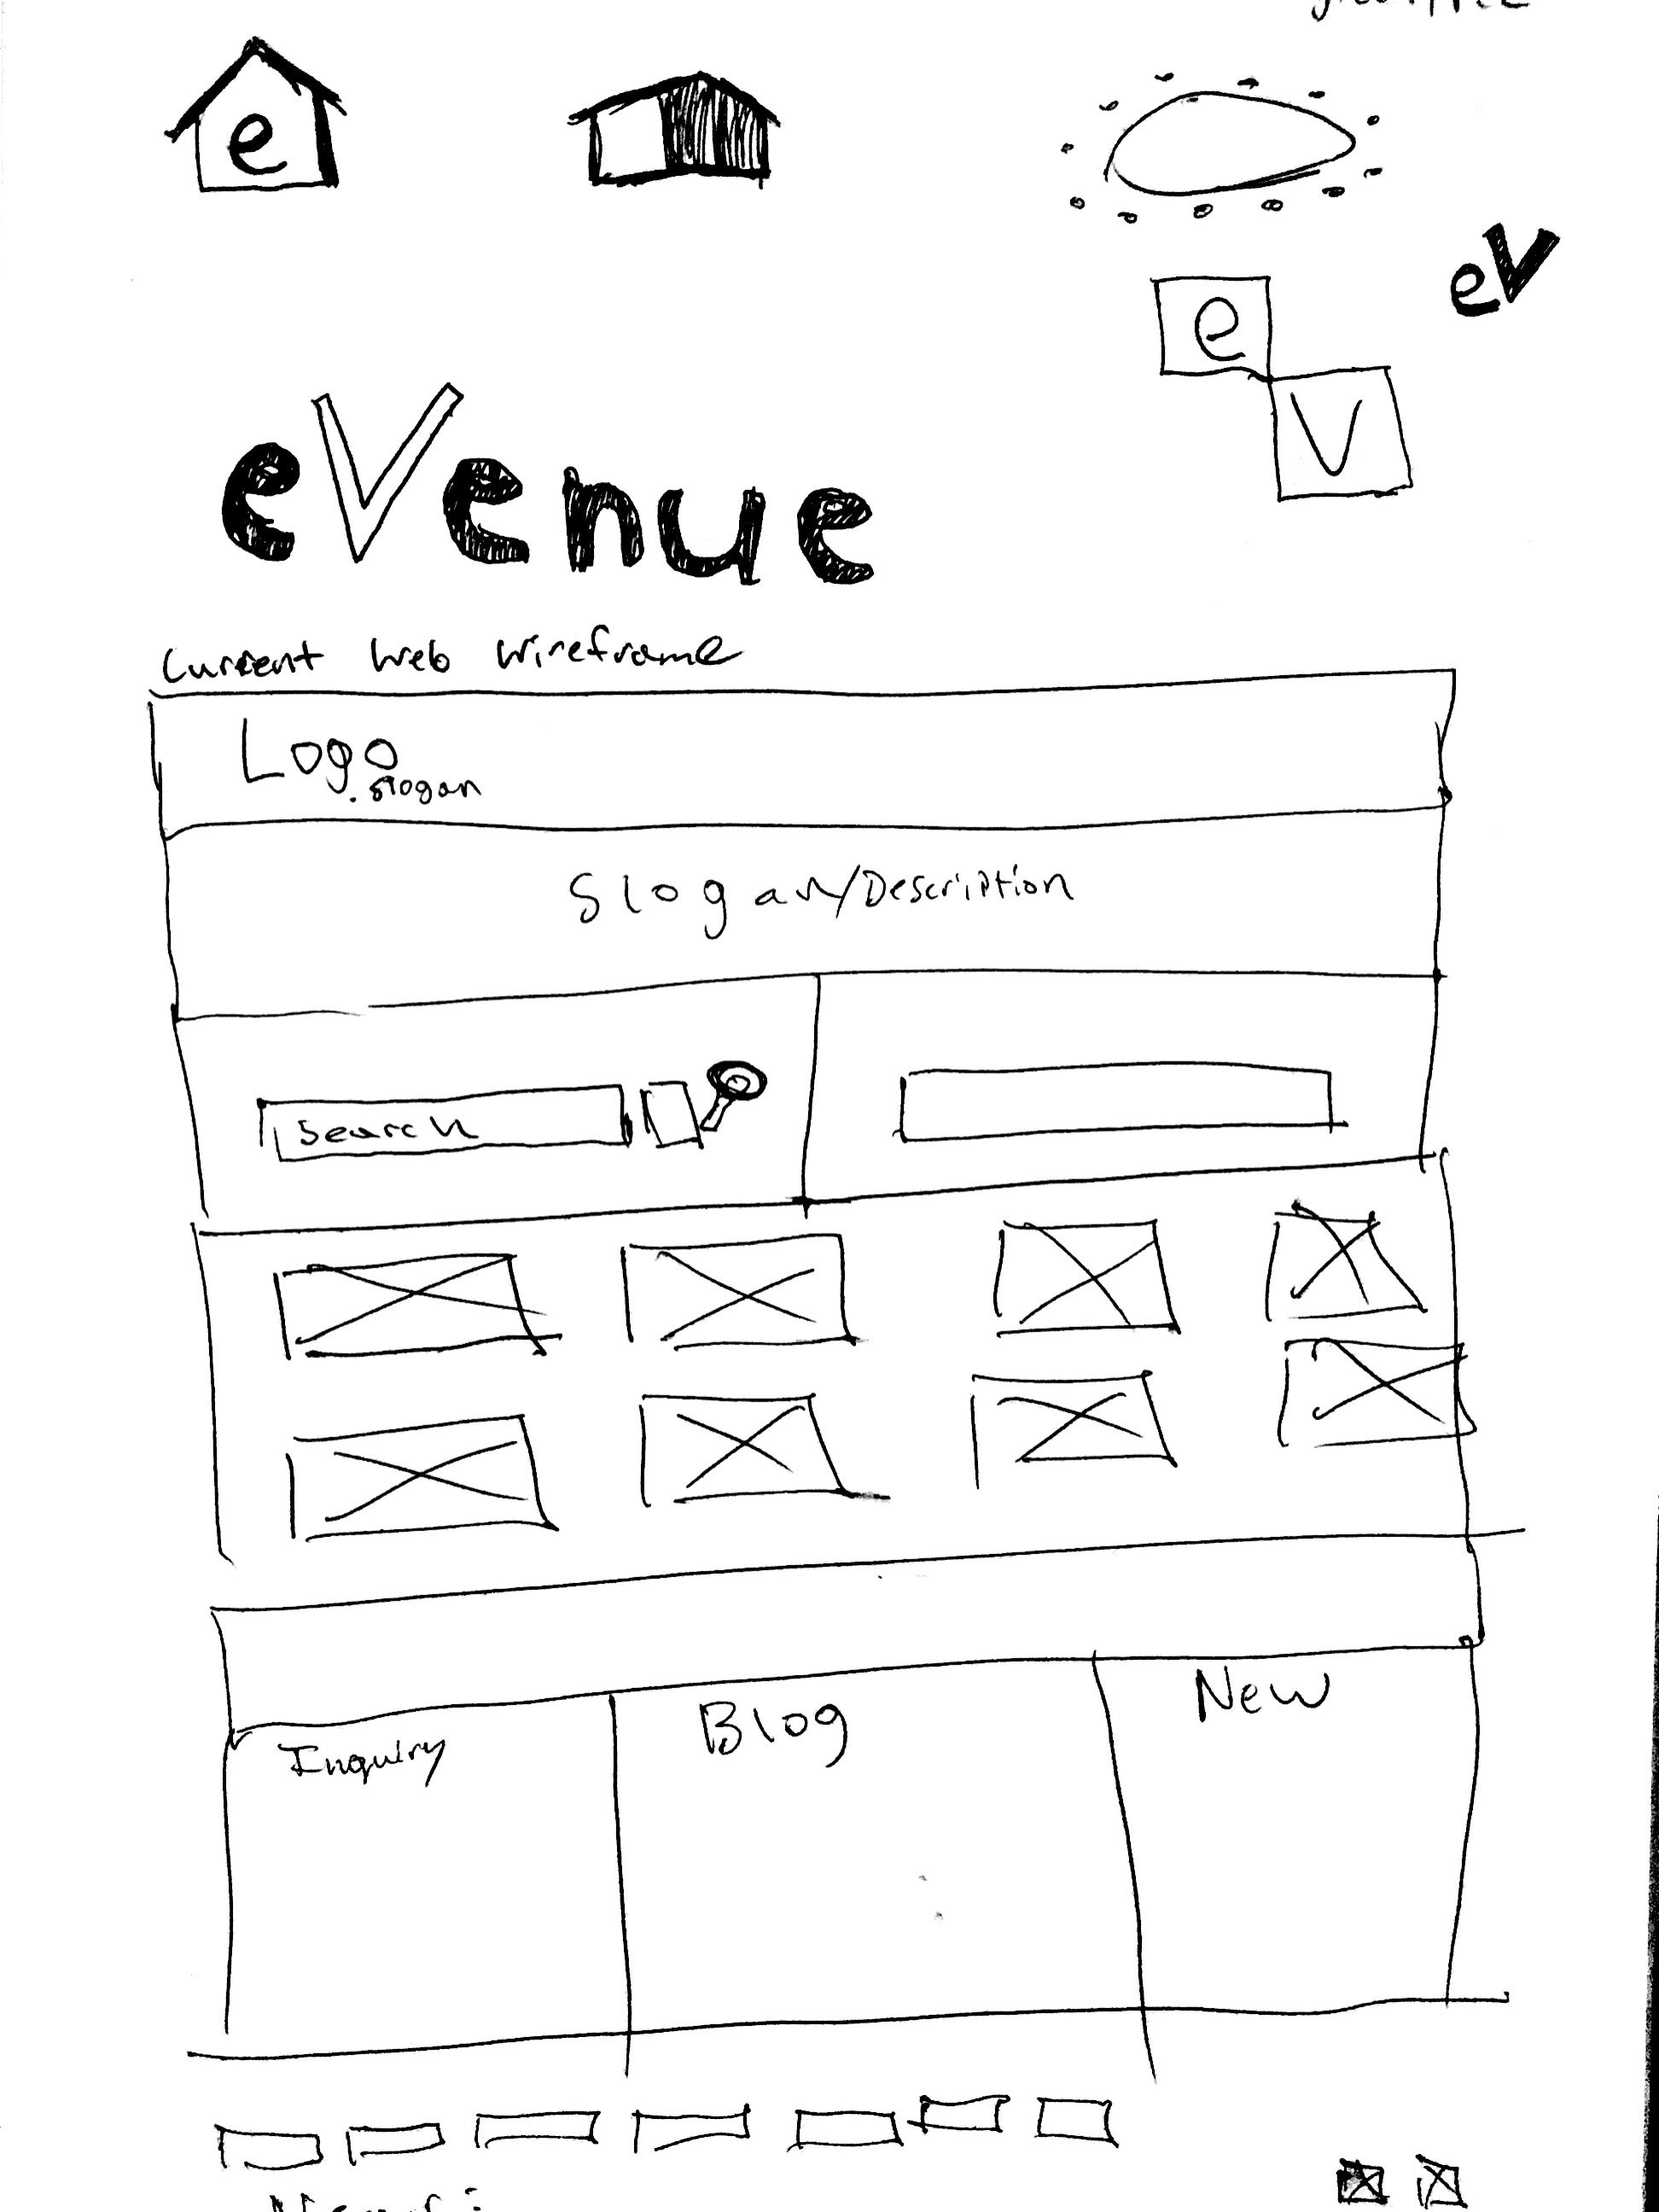 e
eV
e
V
eVenue
Current Web Wireframe
Logo
.slogan
Slogan/Description
Search
Inquiry
Blog
New